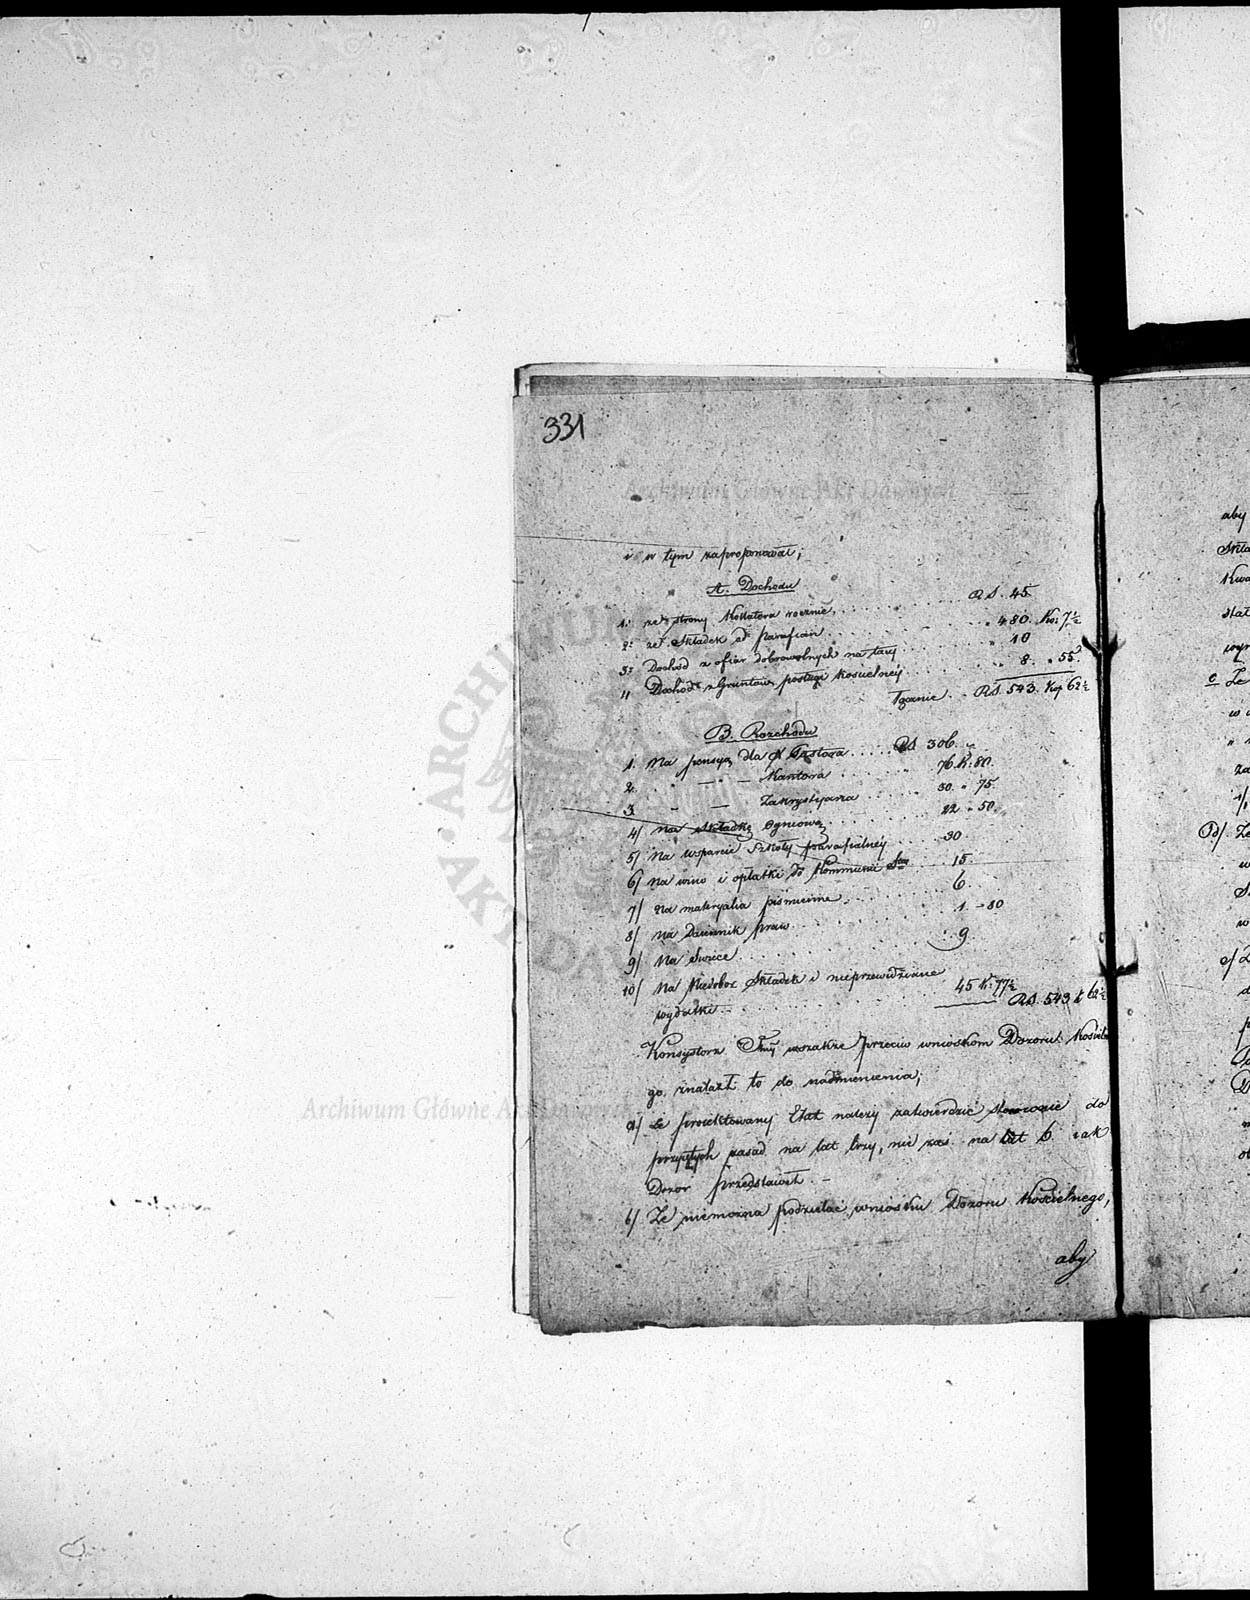 331
i w tym zaproponował;
A. Dochodu
1. ze strony Kollatora rocznie . . . . . . . RS. 45
2. ze Składek od Parafian . . . . . . . „ 480. Ko: 7½
3. Dochód z ofiar dobrowolnych na tacy . . . . „ 10
4 Dochód z Gruntów posługi kościelnéj . . . . „ 8. „ 55.
Łącznie . . RS. 543. Kop 62½
B. Rozchodu
1. Na pensyą dla X Pastora . . . . . RS 306. „
2. „ — „ — Kantora . . . . . 76. K: 80.
3. „ — Zakrystyana . . . . . 30. „ 75.
4/ Na Składkę Ogniową . . . . . 22 „ 50.
5/ Na wsparcie Szkoły parafialnéj . . . . 30
6/ Na wino i opłatki do Kommunii Stéj 15
7/ Na materyalia piśmienne . . . . . 6.
8/ Na Dziennik praw . . . . . 1. - 80
9/ Na Świece . . . . . 9
10/ Na Niedobor Składek i nieprzewidziane
wydatki . . . . . 45 K: 77½
RS. 543 k 62½
Konsystorz Tmy wszakże przeciw wnioskom Dozoru Kościelne
go, znalazł to do nadmienienia;
a/ Że proiektowany Etat należy zatwierdzić stosownie do
przyjętych zasad na lat trzy, nie zaś na lat 6. iak
Dozór przedstawił. —
b/ Że niemożna podzielać wniosku Dozoru Kościelnego,
aby
aby
w
c Że
w
d/ Że
w
w
e/
Archiwum Główne Akt Dawnych
ARCHIWUM
AKT DA
Archiwum Główne Akt Dawnych